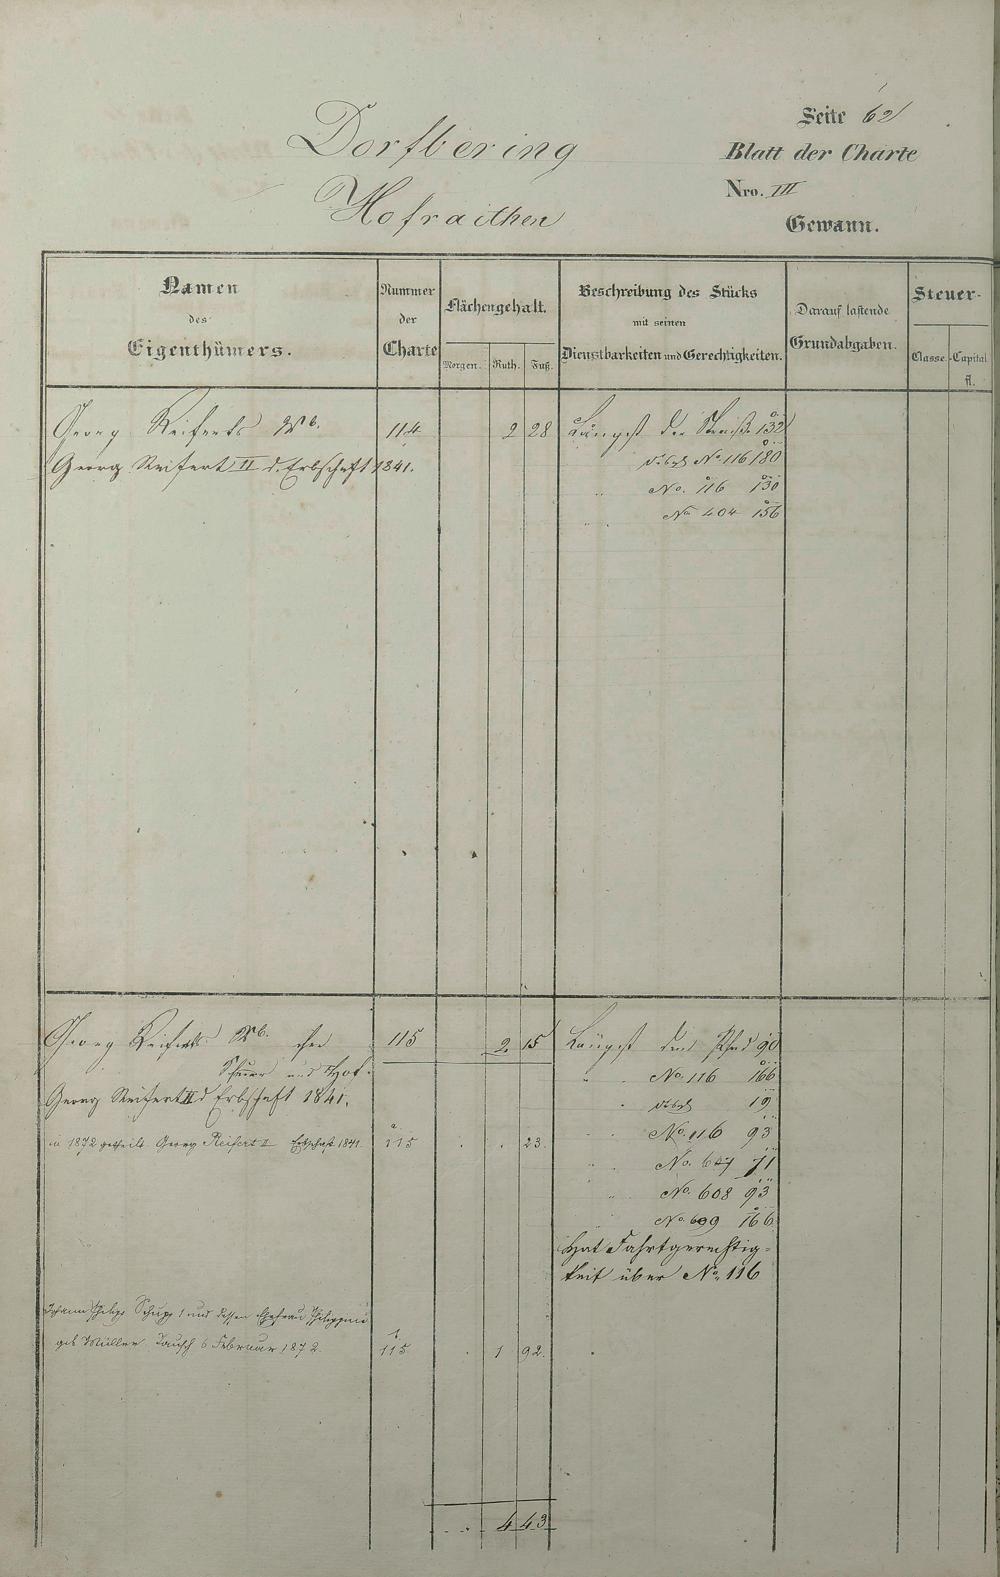 Seite 62
Dorfbering
Blatt der Charte
Nro. III
Hofraithen
Gewann.
Namen
des
Eigenthümers.
Nummer
der
Charte
Flächengehalt.
Morgen. Ruth. Fuß.
Beschreibung des Stücks
mit seinen
Dienstbarkeiten und Gerechtigkeiten.
Darauf lastende
Grundabgaben.
Steuer-
Classe. Capital
fl.
Georg Reiferts Wb. 114 2 28 Längst der Straße 132
Georg Reifert II d. Erbschaft 1841. No. 116 180
" No. 116 130
" No. 404 156
Georg Reiferts Wb. 115 2 15 Längst dem Pfad 90
Scheuer und Hof. " No. 116 166
Georg Reifert II d Erbschaft 1841. " 19
in 1872 getheilt Georg Reifert II Erbschaft 1841. 115 a . . 23. " No. 116 93
" No. 607 71
" No. 608 93
" No. 609 166
Hat Fahrtgerechtig-
keit über No. 116
Johann Philipp Schupp I und dessen Ehefrau Philippine
geb Müller Tausch 6 Februar 1872. 115 . 1 92.
. . 4 43